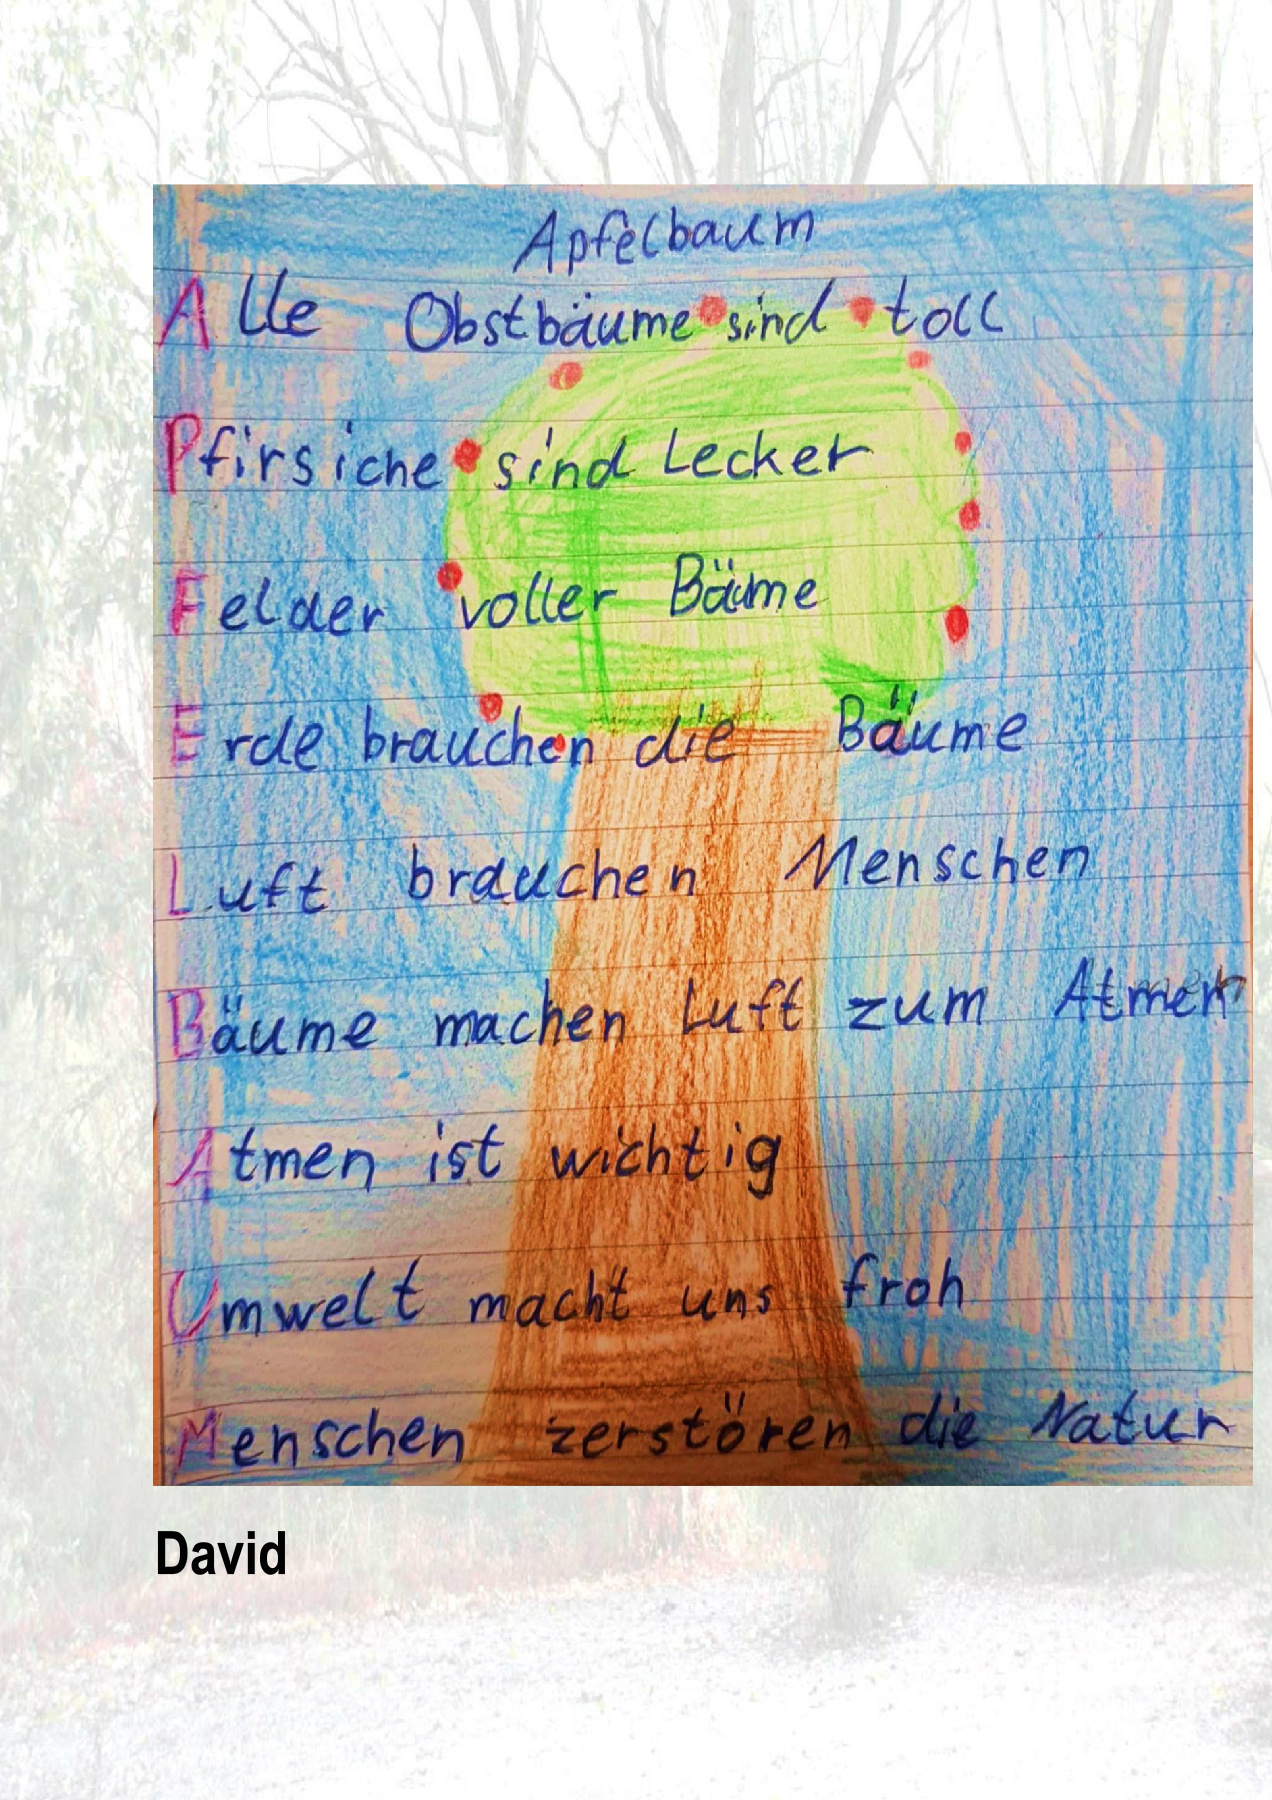 Apfelbaum
Alle Obstbäume sind toll
Pfirsiche sind Lecker
Felder voller Bäume
Erde brauchen die Bäume
Luft brauchen Menschen
Bäume machen Luft zum Atmen
Atmen ist wichtig
Umwelt macht uns froh
Menschen zerstören die Natur
David